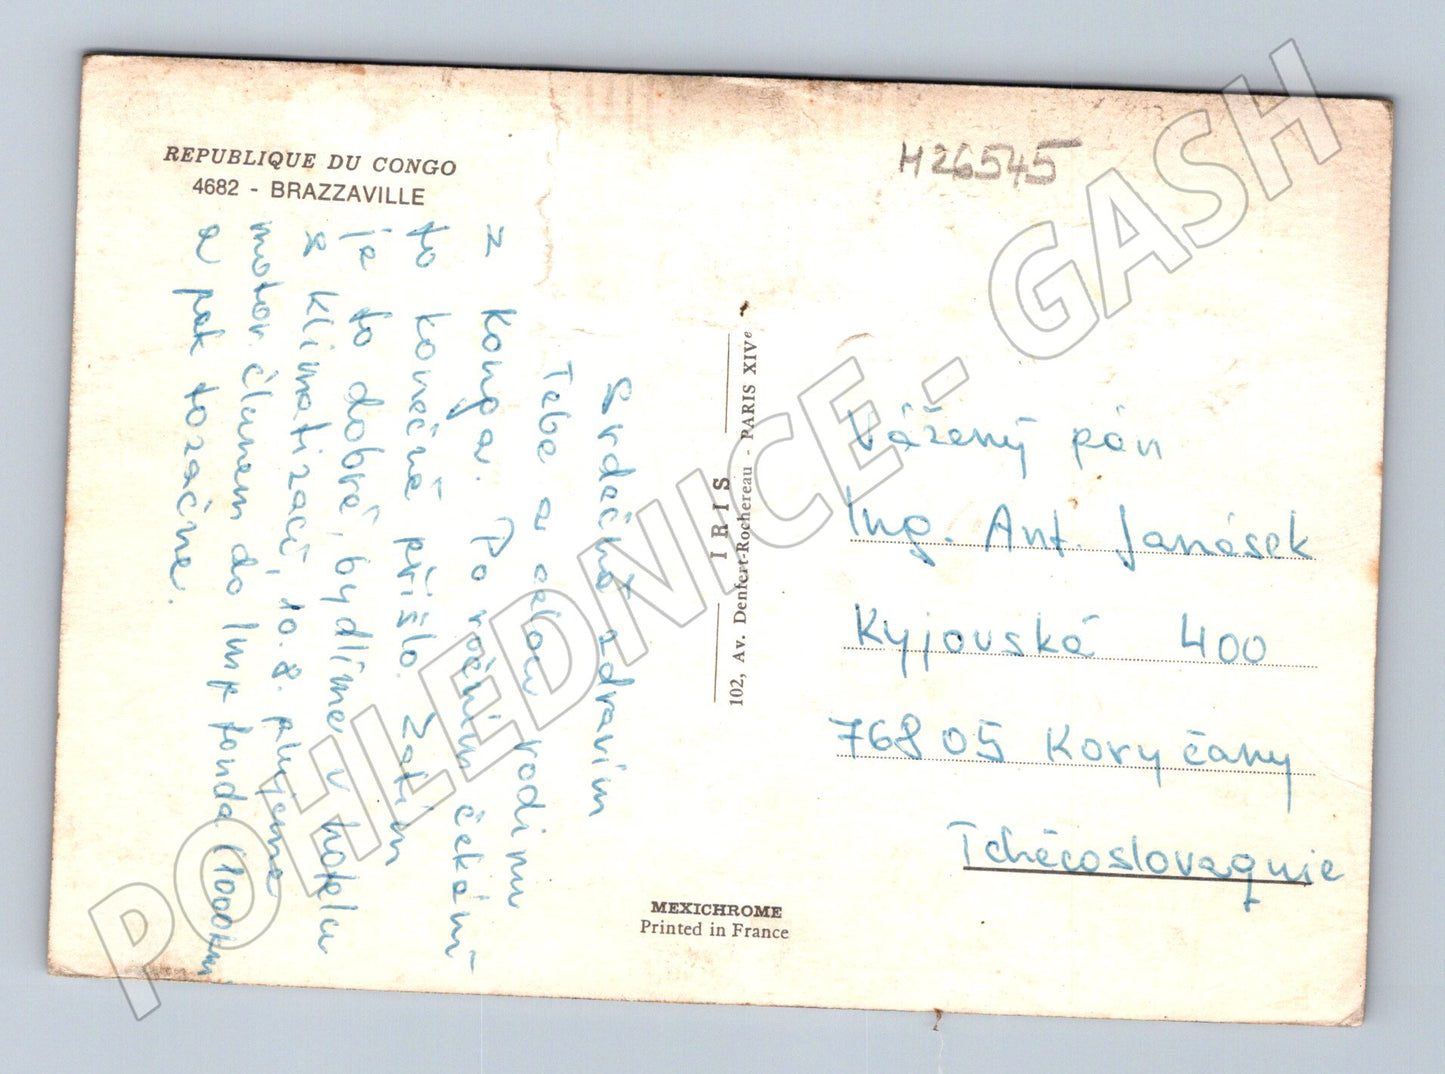 REPUBLIQUE DU CONGO
4682 - BRAZZAVILLE
H26545
Srdečně zdravím
Tebe a celou rodinu
z Konga. Po ročním čekání
to konečně přišlo. Zatím
je to dobré, bydlíme v hotelu
s klimatizací, 10.8. plujeme
motor. člunem do Impfonda (1000km
a pak to začne.
IRIS
102, Av. Denfert-Rochereau - PARIS XIVe
Vážený pán
Ing. Ant. Janásek
Kyjovská 400
76805 Koryčany
Tchécoslovaquie
MEXICHROME
Printed in France
POHLEDNICE - GASH